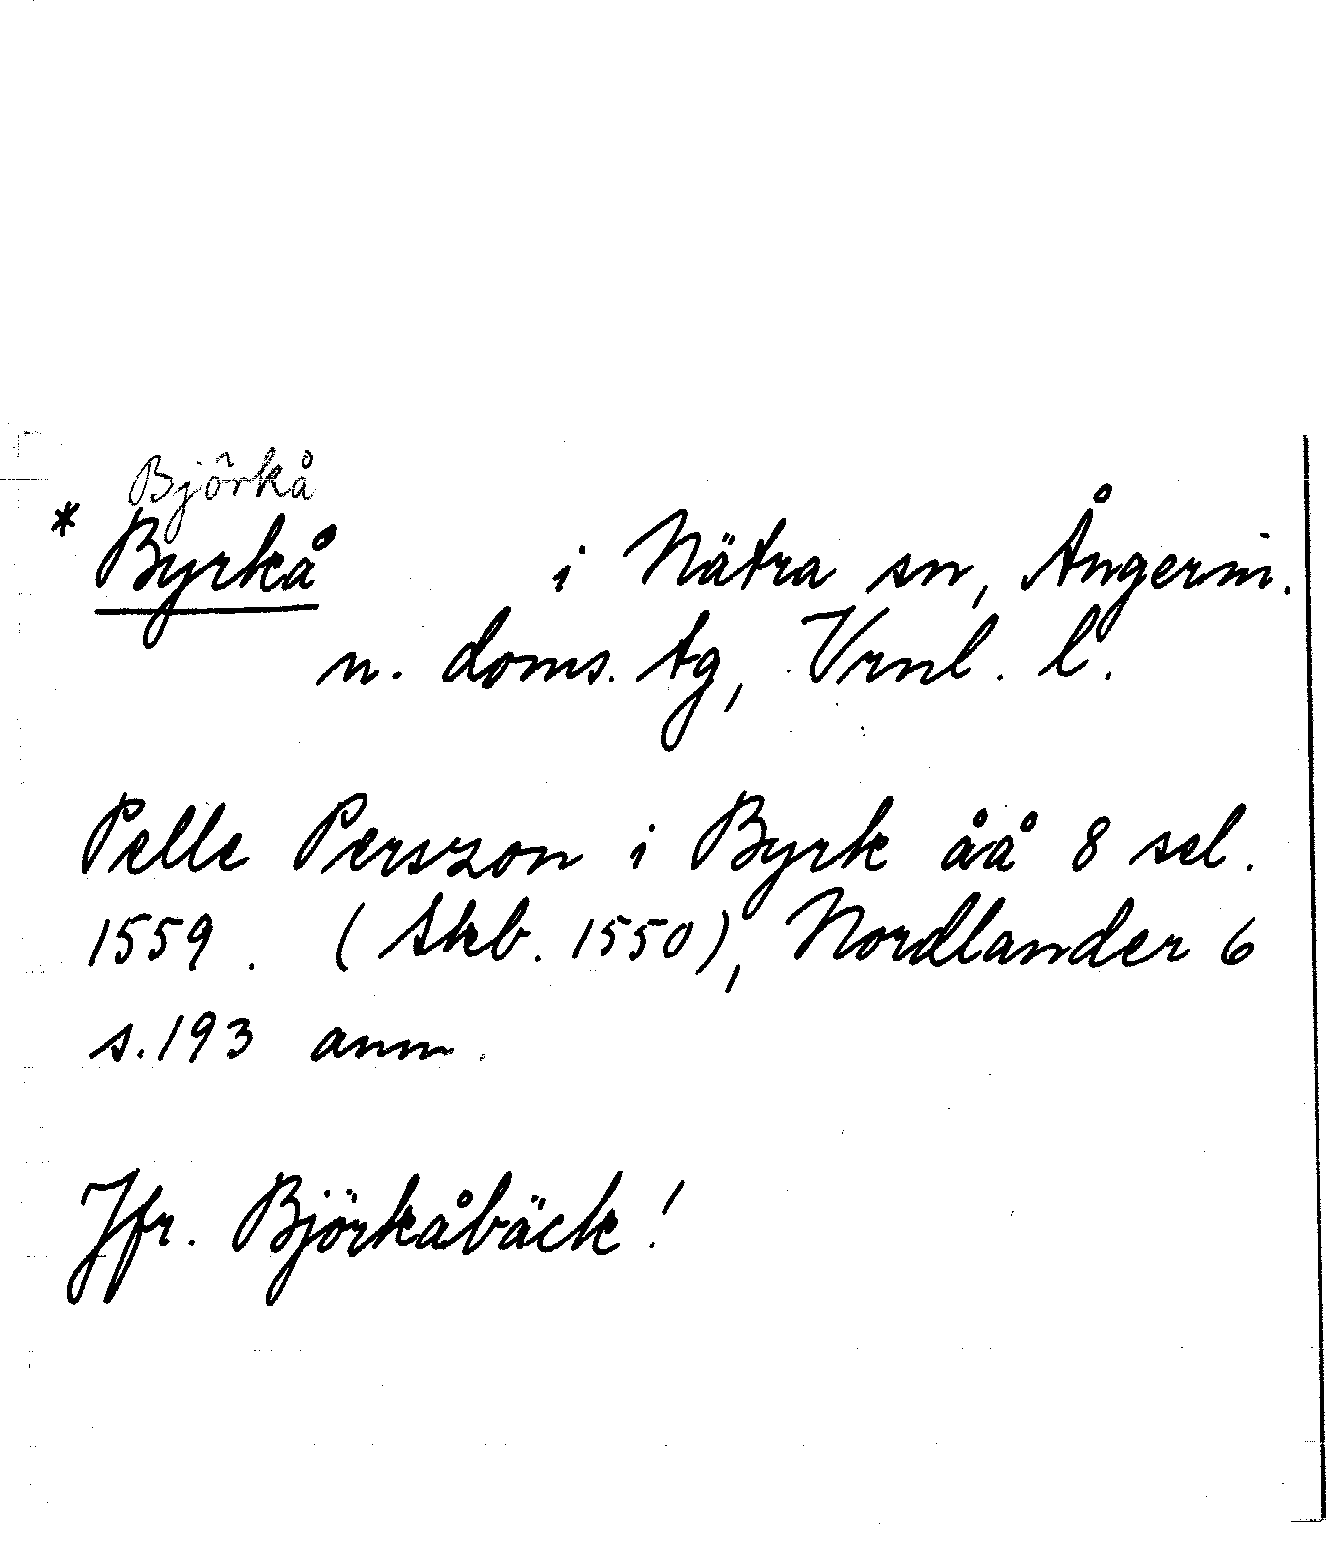 Björkå
* Byrkå i Nätra sn, Ångerm.
n. doms. tg, Vrnl. l.
Pelle Perszon i Byrk åå 8 sel.
1559. (Skb. 1550), Nordlander 6
s. 193 anm.
Jfr. Björkåbäck!